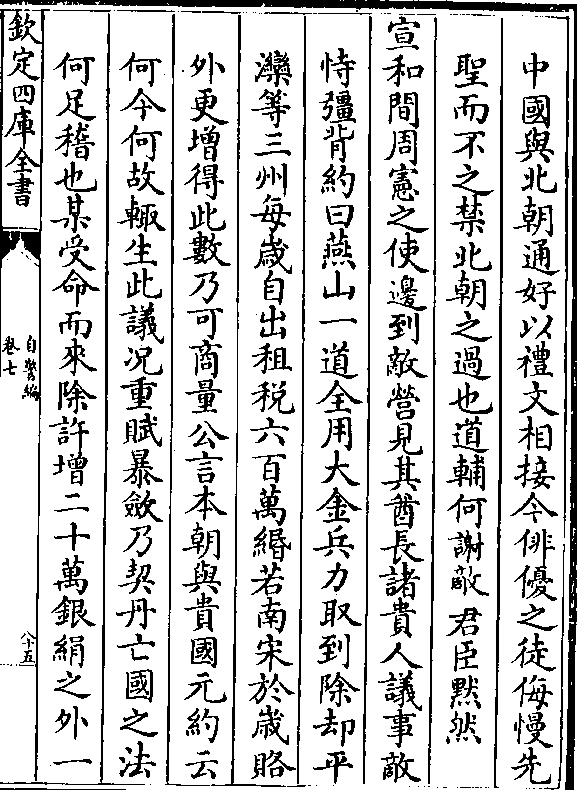 中國與北朝通好以禮文相接今俳優之徒侮慢先
聖而不之禁北朝之過也道輔何謝敵君臣黙然
宣和間周憲之使邊到敵營見其酋長諸貴人議事敵
恃彊背約曰燕山一道全用大金兵力取到除却平
灤等三州每歲自出租税六百萬緡若南宋於歲賂
外更增得此數乃可商量公言本朝與貴國元約云
何今何故輙生此議况重賦暴斂乃契丹亡國之法
何足稽也某受命而來除許增二十萬銀絹之外一
欽定四庫全書
自警編
卷七
八十五